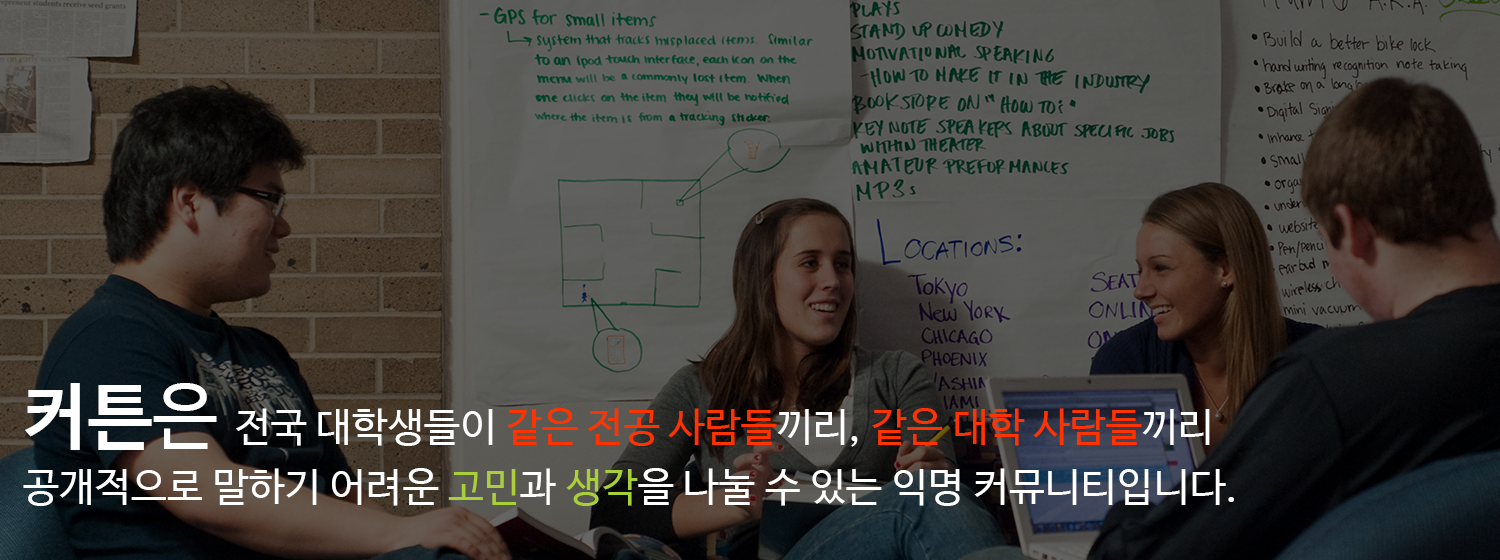 present students receive seed grants
- GPS for small items
system that tracks misplaced items. Similar
to an ipod touch interface, each icon on the
menu will be a commonly lost item. When
one clicks on the item they will be notified
where the item is from a tracking sticker.
PLAYS
STAND UP COMEDY
MOTIVATIONAL SPEAKING
- HOW TO MAKE IT IN THE INDUSTRY
BOOKSTORE ON "HOW TO:"
KEY NOTE SPEAKERS ABOUT SPECIFIC JOBS
WITHIN THEATER
AMATEUR PREFORMANCES
MP3s
LOCATIONS:
TOKYO
NEW YORK
CHICAGO
PHOENIX
SEAT
ONLIN
A.K.A.
• Build a better bike lock
• hand writing recognition note taking
• Brake on a long
• Digital Sign
• inhance
• Small
• orga
• under
• website
• Pen/penci
wireless ch
mini vacuum
커튼은 전국 대학생들이 같은 전공 사람들끼리, 같은 대학 사람들끼리
공개적으로 말하기 어려운 고민과 생각을 나눌 수 있는 익명 커뮤니티입니다.